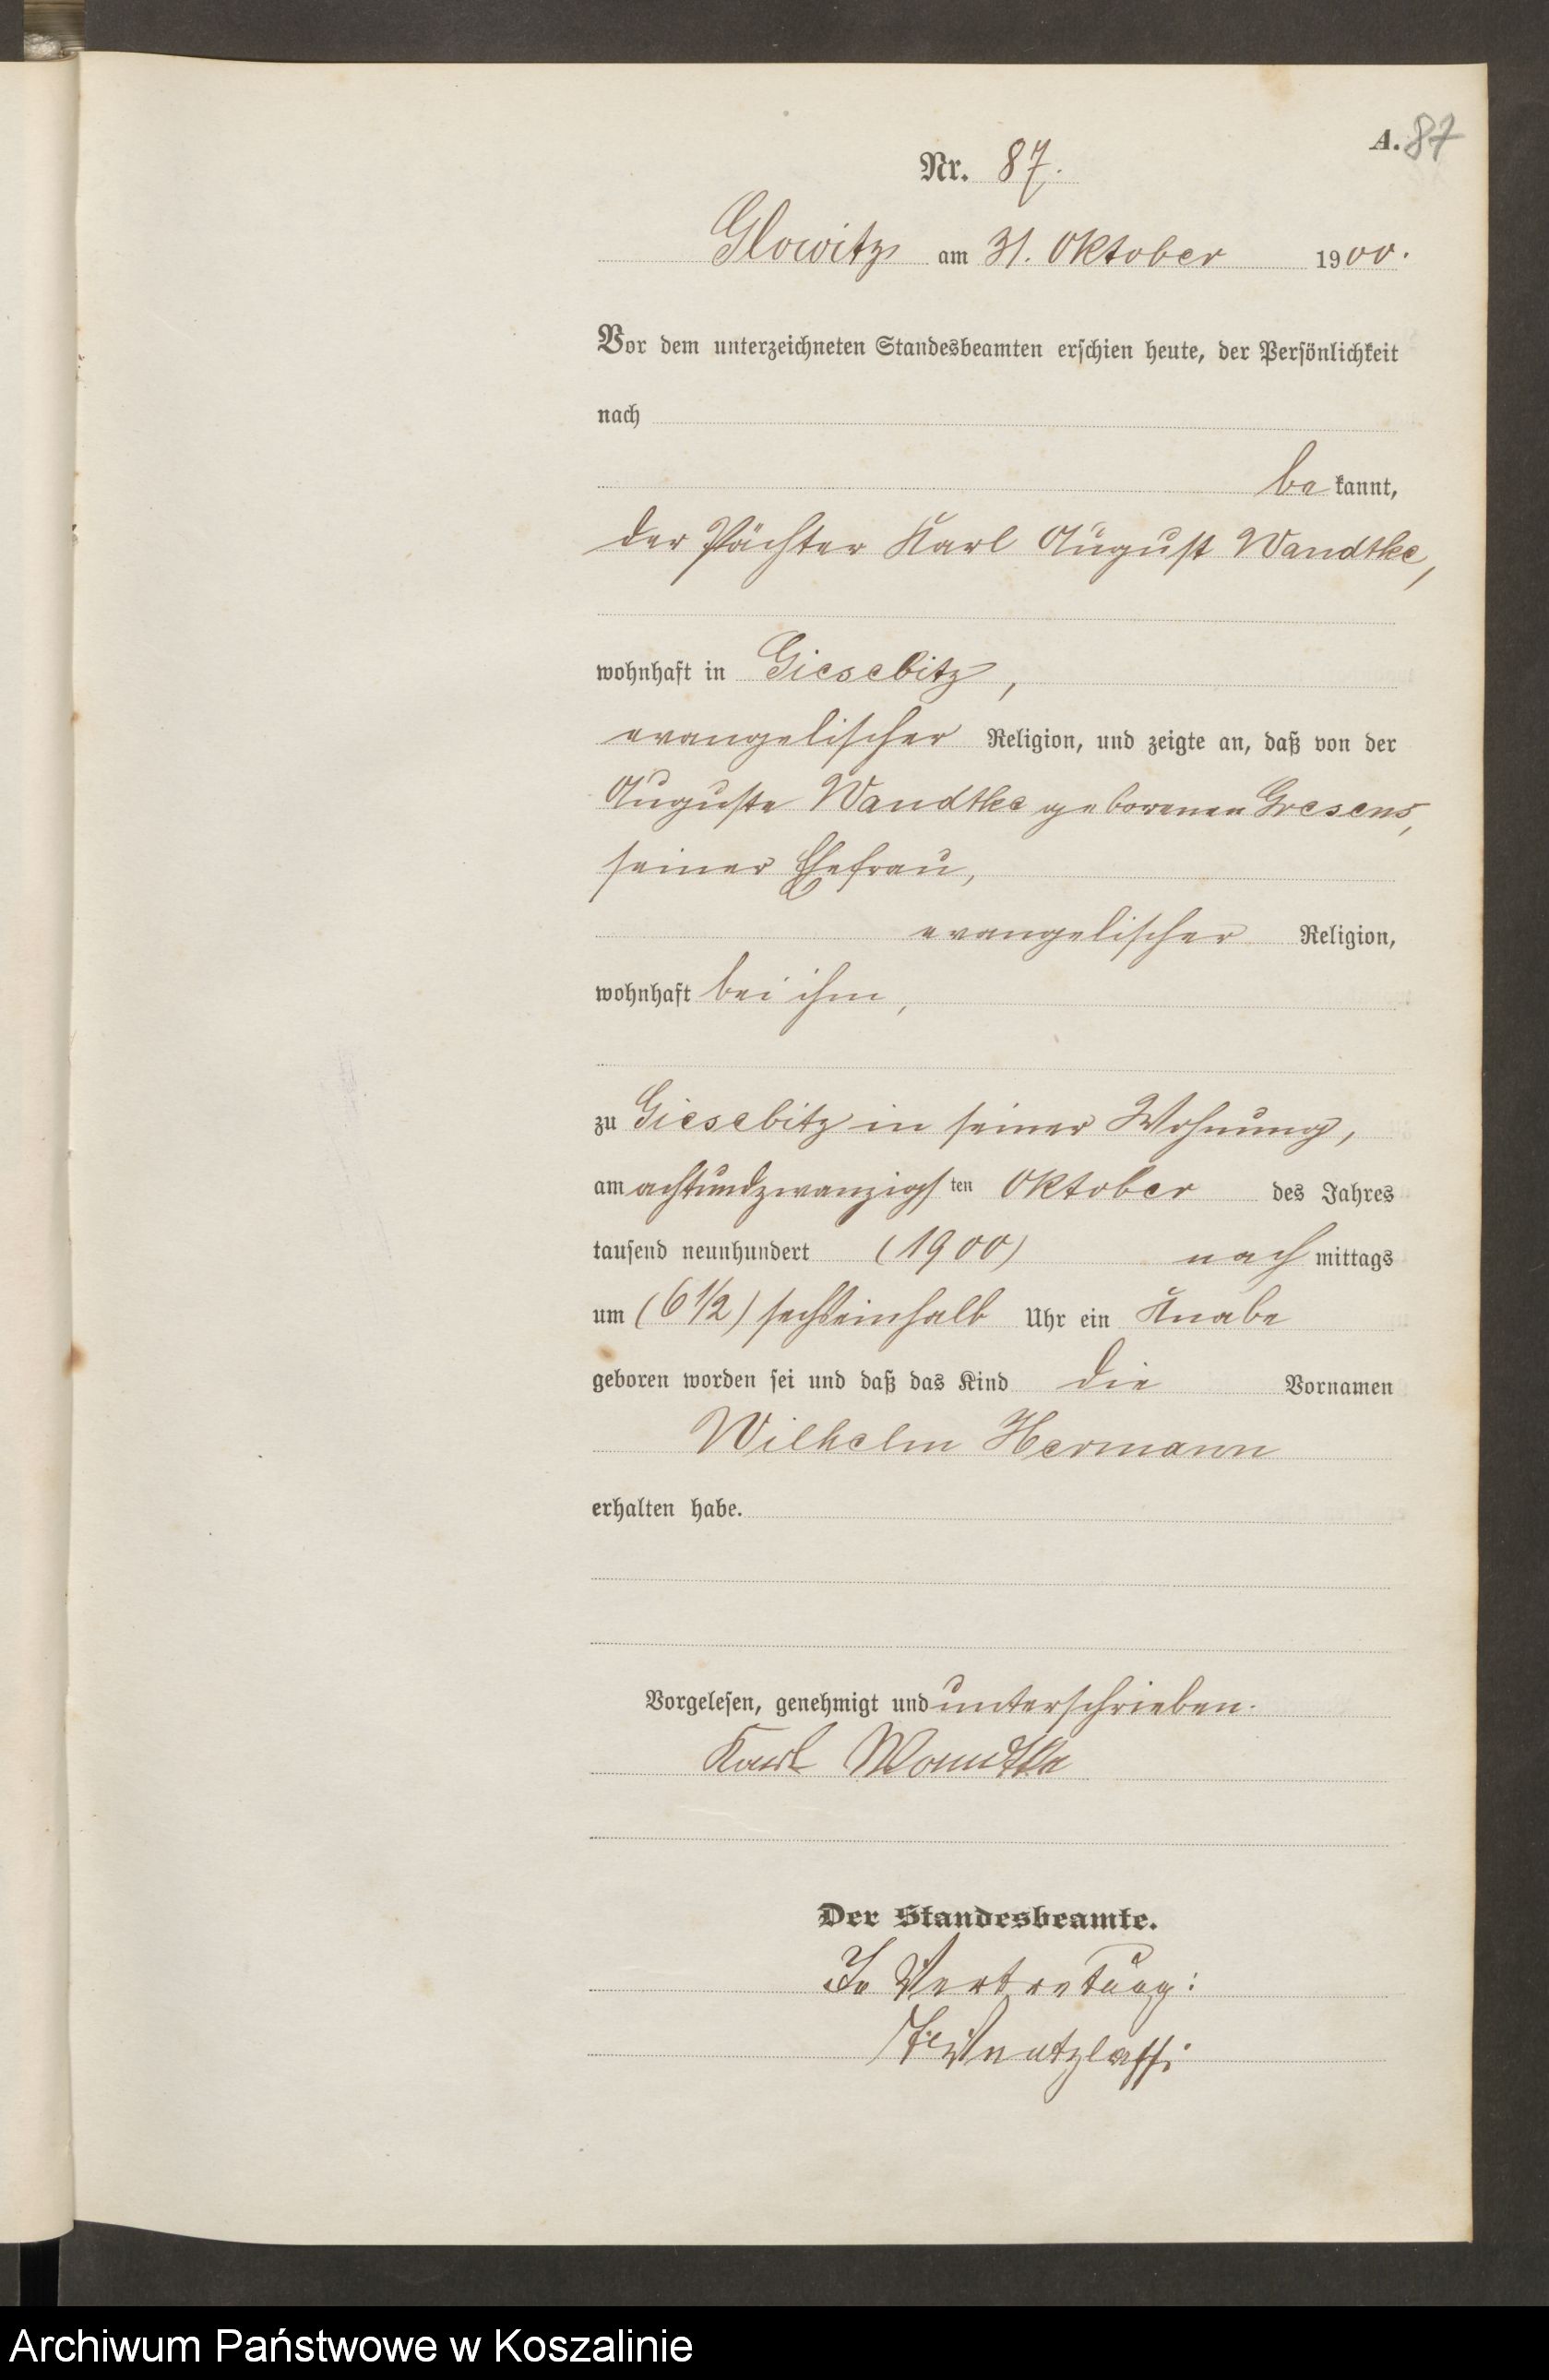 A. 87
Nr. 87.
Glowitz am 31. Oktober 1900.
Vor dem unterzeichneten Standesbeamten erschien heute, der Persönlichkeit
nach
be kannt,
der Pächter Karl August Wandtke,
wohnhaft in Giesebitz,
evangelischer Religion, und zeigte an, daß von der
Auguste Wandtke geborenen Gresens,
seiner Ehefrau,
evangelischer Religion,
wohnhaft bei ihm,
zu Giesebitz in seiner Wohnung,
am achtundzwanzigsten Oktober des Jahres
tausend neunhundert (1900) nach mittags
um (6 1/2) sechseinhalb Uhr ein Knabe
geboren worden sei und daß das Kind die Vornamen
Wilhelm Hermann
erhalten habe.
Vorgelesen, genehmigt und unterschrieben.
Karl Wandtke
Der Standesbeamte.
In Vertretung:
Archiwum Państwowe w Koszalinie